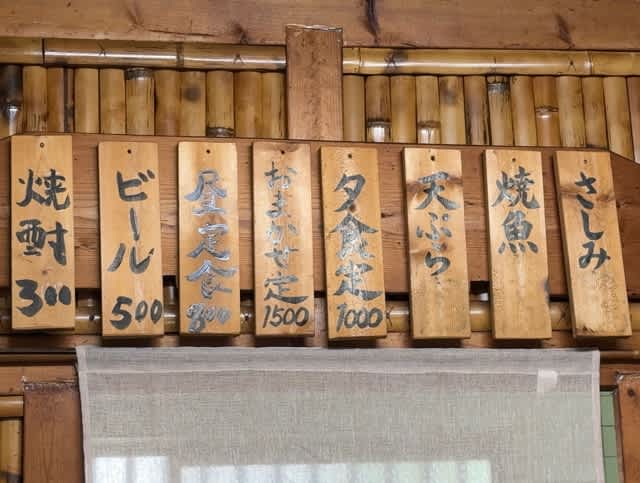 さしみ
焼魚
天ぷら
夕食定
1000
おまかせ定
1500
昼定食
800
ビール
500
焼酎
300